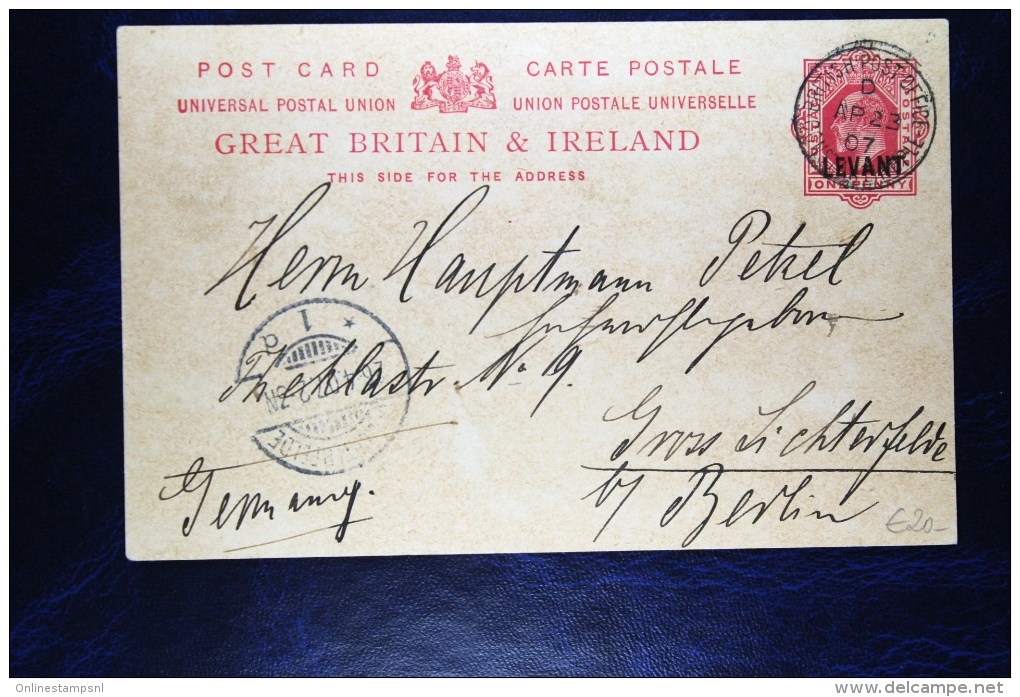 POST CARD CARTE POSTALE
UNIVERSAL POSTAL UNION UNION POSTALE UNIVERSELLE
GREAT BRITAIN & IRELAND
THIS SIDE FOR THE ADDRESS
BRITISH POST OFFICE
D
AP 23
07
LEVANT
ONE PENNY
Herrn Hauptmann Petzel
Theklastr. No 9.
Gross Lichterfelde
b/ Berlin
Germany.
1
a
€20-
Onlinestampsnl